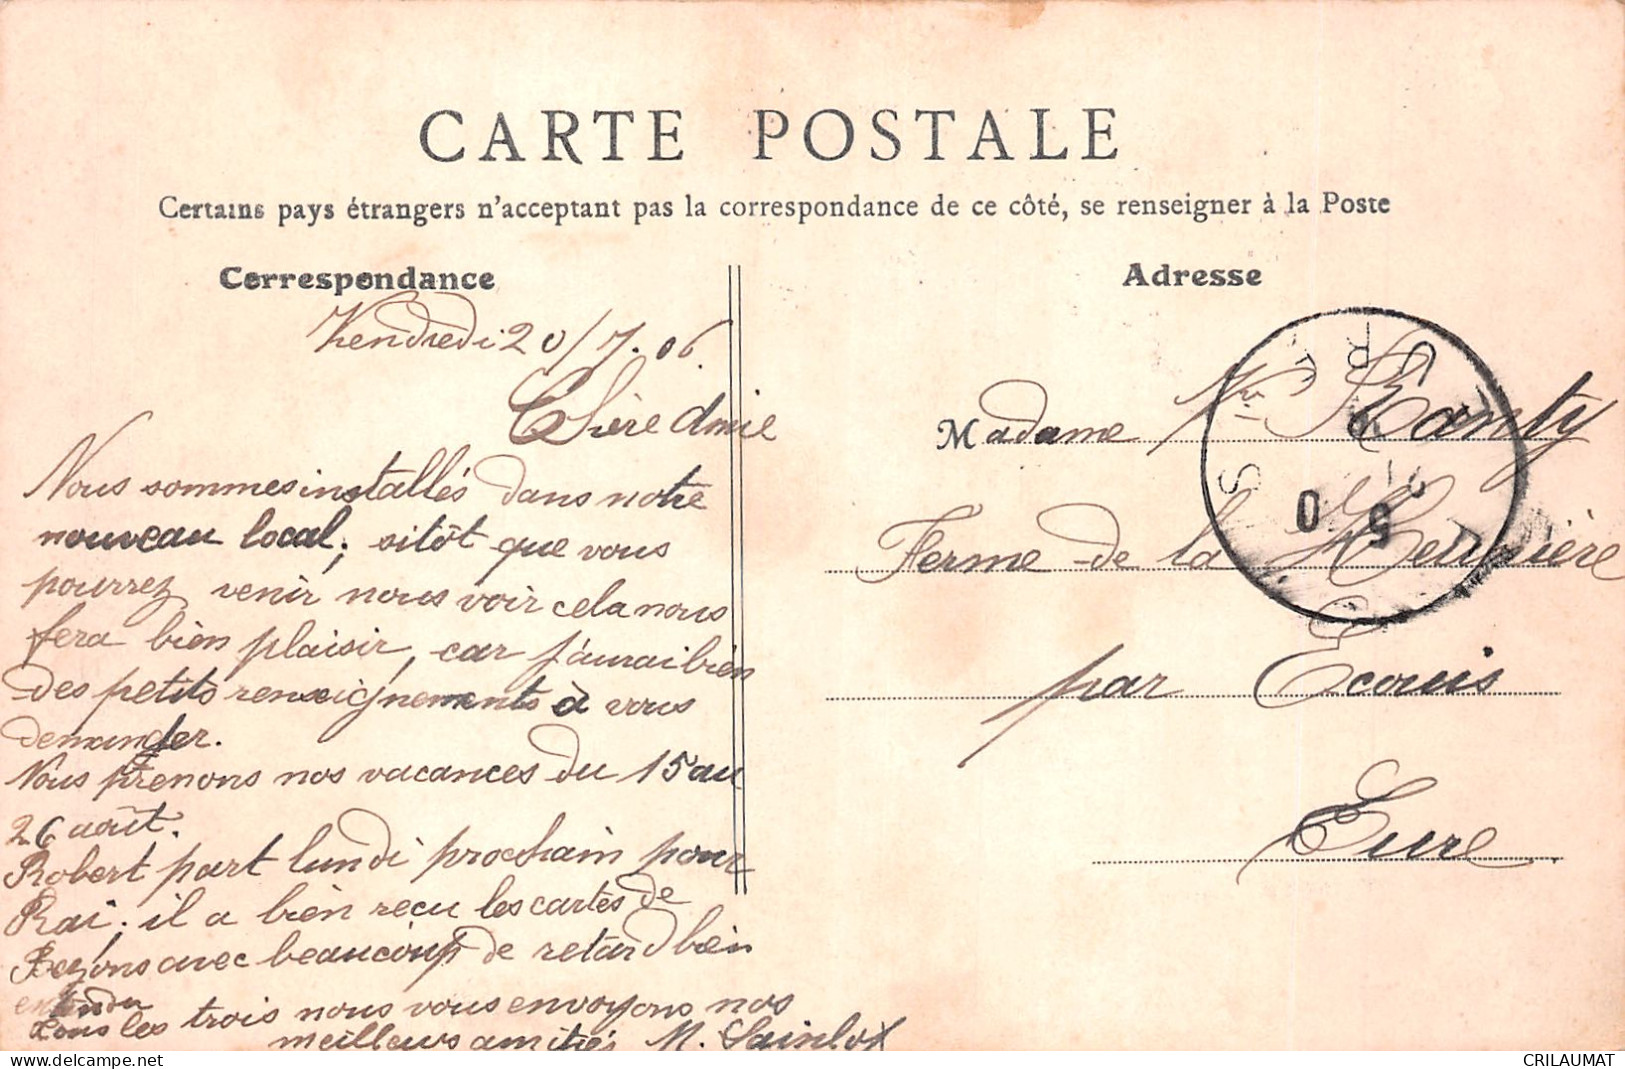 CARTE POSTALE
Certains pays étrangers n'acceptant pas la correspondance de ce côté, se renseigner à la Poste
Correspondance
Vendredi 20/7.06.
Chère amie
Nous sommes installés dans notre
nouveau local; sitôt que vous
pourrez venir nous voir cela nous
fera bien plaisir, car j'aurai bien
des petits renseignements à vous
demander.
Nous prenons nos vacances du 15 au
26 août.
Robert part lundi prochain pour
Rai; il a bien reçu les cartes de
avec beaucoup de retard bien
entendu
tous les trois nous vous envoyons nos
meilleurs amitiés M.
Adresse
Madame Vve
Ferme de la
par Ecouis
Eure
CRILAUMAT